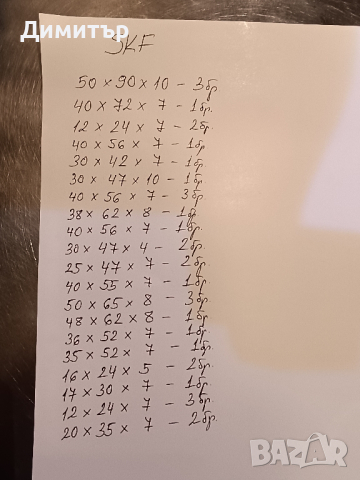 Димитър
SKF
50 × 90 × 10 – 3 бр.
40 × 72 × 7 – 1 бр.
12 × 24 × 7 – 2 бр.
40 × 56 × 7 – 1 бр.
30 × 42 × 7 – 1 бр.
30 × 47 × 10 – 1 бр.
40 × 56 × 7 – 3 бр.
38 × 62 × 8 – 1 бр.
40 × 56 × 7 – 1 бр.
30 × 47 × 4 – 2 бр.
25 × 47 × 7 – 2 бр.
40 × 55 × 7 – 1 бр.
50 × 65 × 8 – 3 бр.
48 × 62 × 8 – 1 бр.
36 × 52 × 7 – 1 бр.
35 × 52 × 7 – 1 бр.
16 × 24 × 5 – 2 бр.
17 × 30 × 7 – 1 бр.
12 × 24 × 7 – 3 бр.
20 × 35 × 7 – 2 бр.
BAZAR